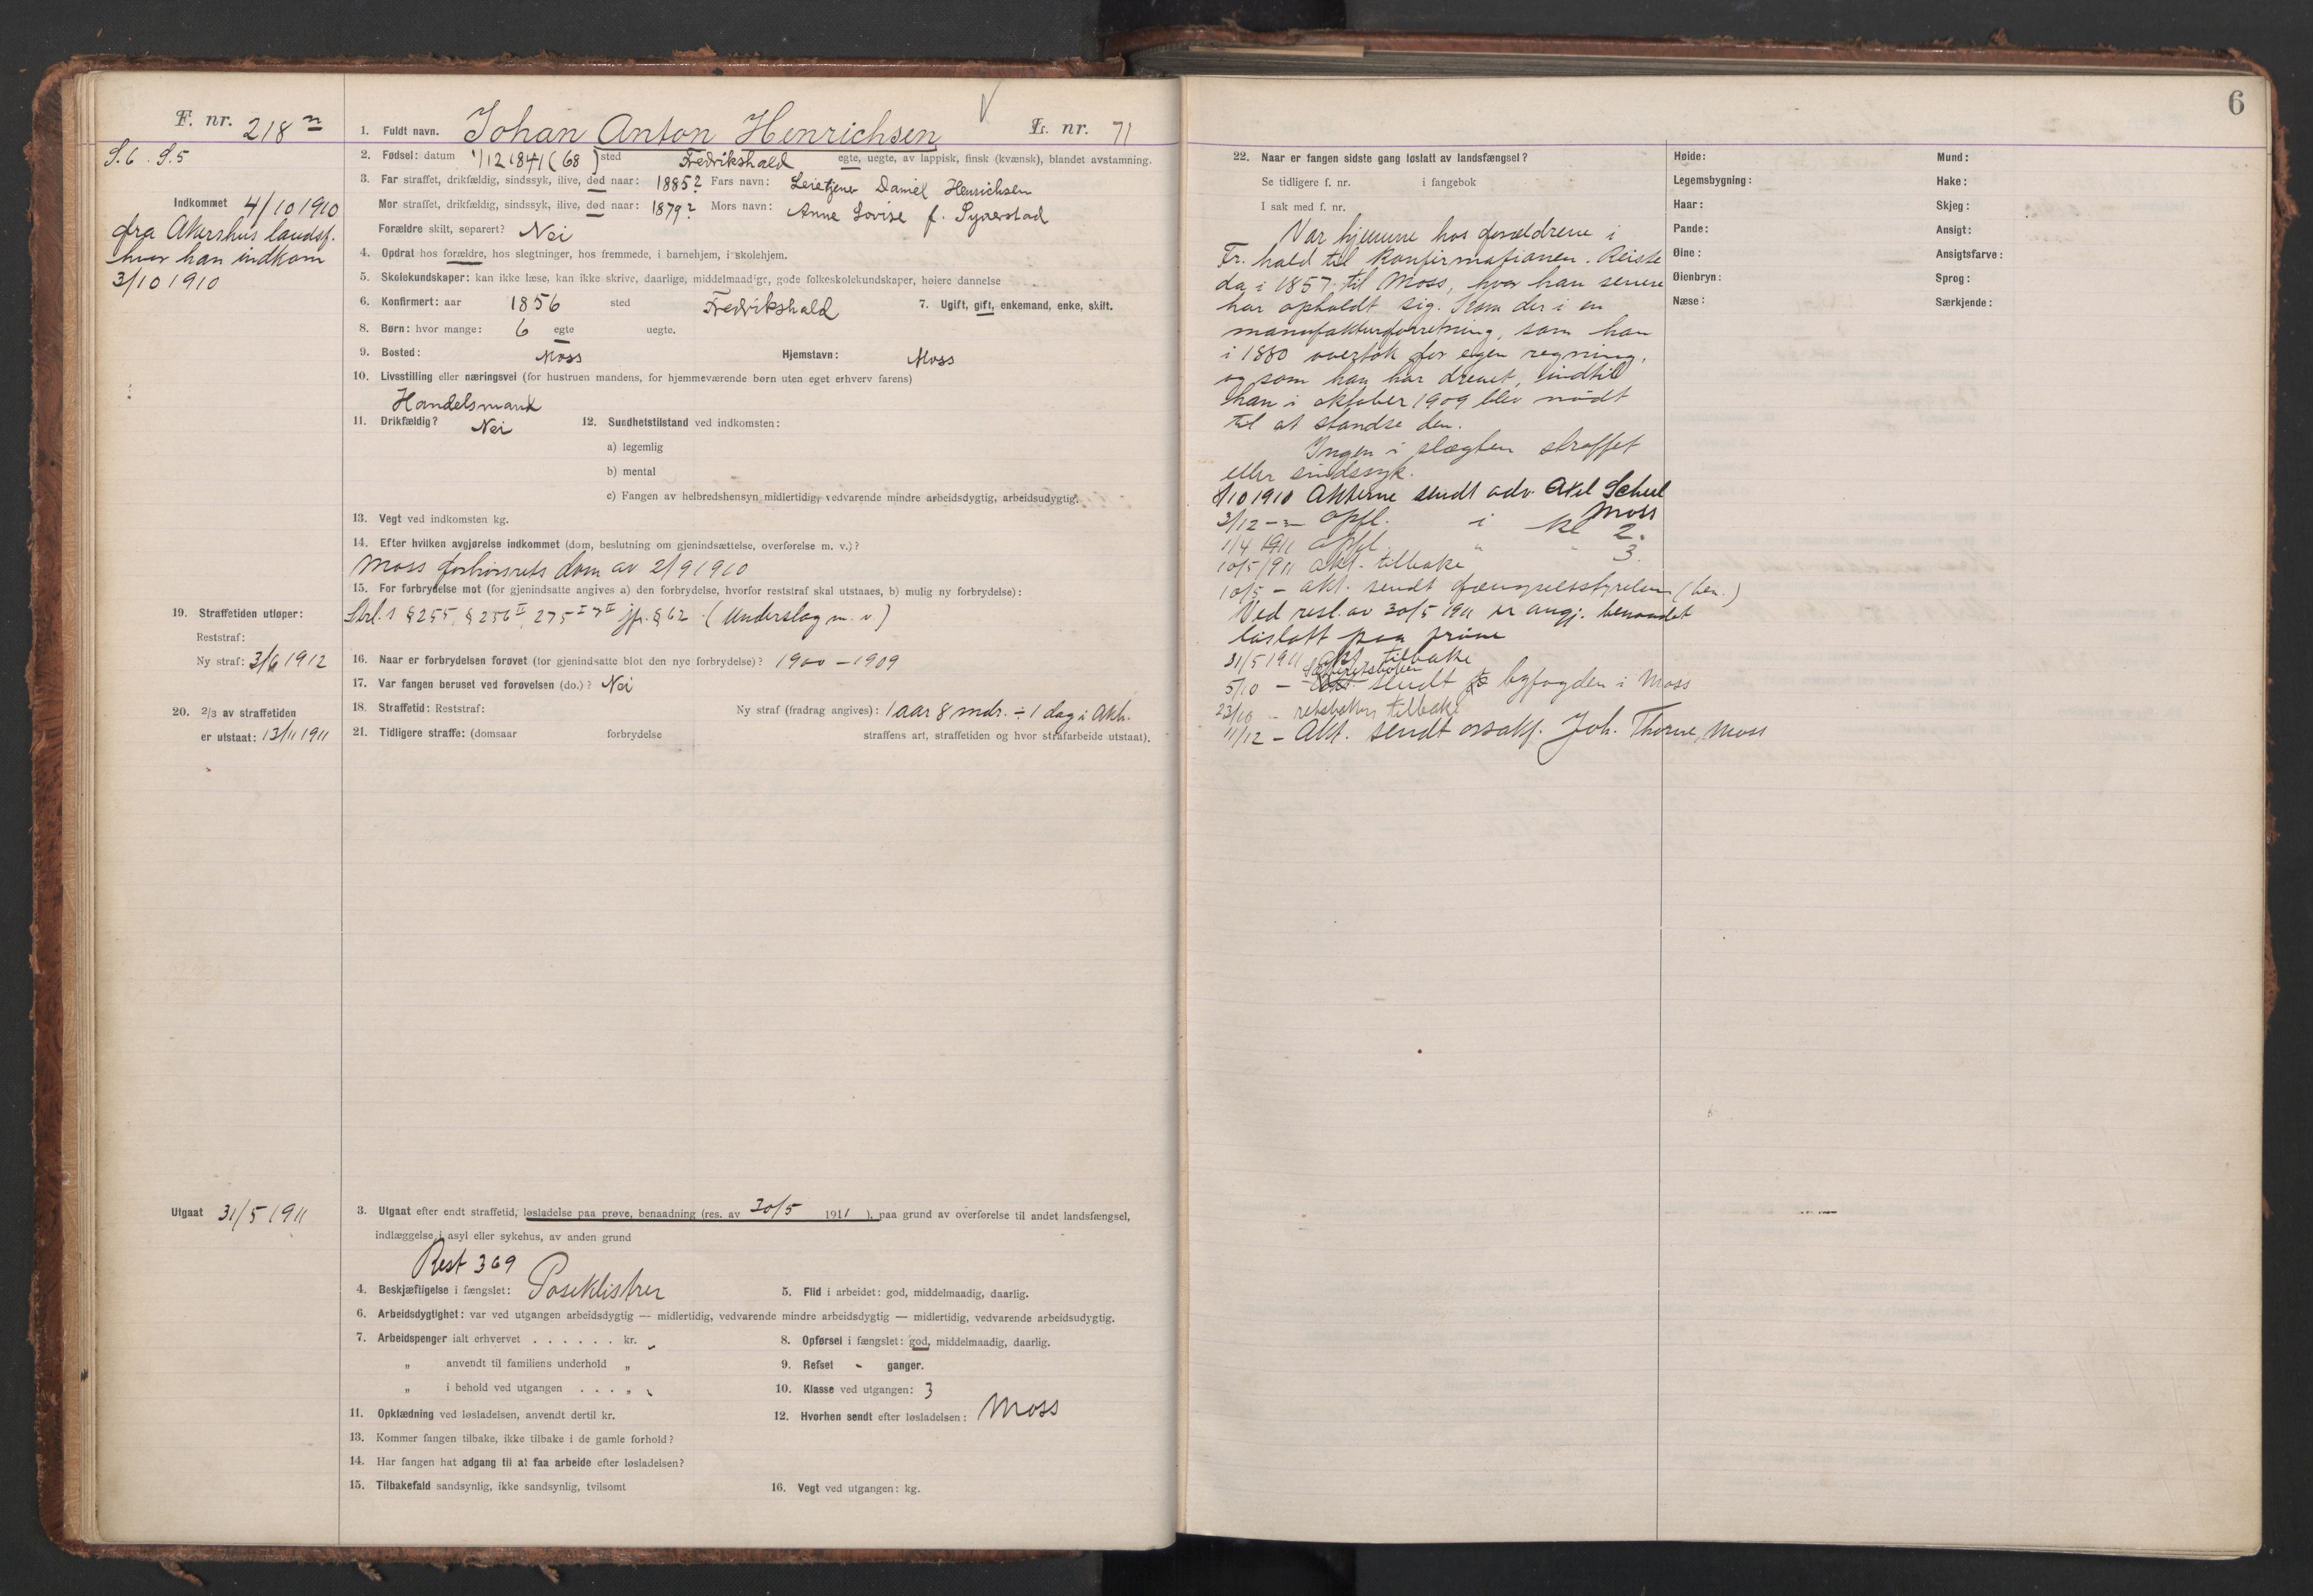 F. nr. 218
S.6. S.5
Indkommet 4/10 1910
fra Akershus landsf.
hvor han indkom
3/10 1910
1. Fuldt navn. Johan Anton Henrichsen L. nr. 71
2. Fødsel: datum 1/12 1841 (68) sted Fredrikshald egte, uegte, av lappisk, finsk (kvænsk), blandet avstamning.
3. Far straffet, drikfældig, sindssyk, ilive, død naar: 1885? Fars navn: Leietjener Daniel Henrichsen
Mor straffet, drikfældig, sindssyk, ilive, død naar: 1879? Mors navn: Anne Lovise f.
Forældre skilt, separert? Nei
4. Opdrat hos forældre, hos slegtninger, hos fremmede, i barnehjem, i skolehjem.
5. Skolekundskaper: kan ikke læse, kan ikke skrive, daarlige, middelmaadige, gode folkeskolekundskaper, høiere dannelse
6. Konfirmert: aar 1856 sted Fredrikshald 7. Ugift, gift, enkemand, enke, skilt.
8. Børn: hvor mange: 6 egte uegte.
9. Bosted: Moss Hjemstavn: Moss
10. Livsstilling eller næringsvei (for hustruen mandens, for hjemmeværende børn uten eget erhverv farens)
Handelsmand
11. Drikfældig? Nei 12. Sundhetstilstand ved indkomsten:
a) legemlig
b) mental
c) Fangen av helbredshensyn midlertidig, vedvarende mindre arbeidsdygtig, arbeidsudygtig.
13. Vegt ved indkomsten kg.
14. Efter hvilken avgjørelse indkommet (dom, beslutning om gjenindsættelse, overførelse m. v.)?
Moss forhørsrets dom av 2/9 1910
15. For forbrydelse mot (for gjenindsatte angives a) den forbrydelse, hvorfor reststraf skal utstaaes, b) mulig ny forbrydelse):
Strl.s § 255, § 256 II, 275 I & II jfr. § 62. (Underslag m. v.)
19. Straffetiden utløper:
Reststraf:
Ny straf: 3/6 1912
16. Naar er forbrydelsen forøvet (for gjenindsatte blot den nye forbrydelse)? 1900 - 1909
17. Var fangen beruset ved forøvelsen (do.)? Nei
18. Straffetid: Reststraf: Ny straf (fradrag angives): 1 aar 8 mdr. ÷ 1 dag i Akh.
20. 2/3 av straffetiden
er utstaat: 13/11 1911
21. Tidligere straffe: (domsaar forbrydelse straffens art, straffetiden og hvor strafarbeide utstaat).
Utgaat 31/5 1911
3. Utgaat efter endt straffetid, løsladelse paa prøve, benaadning (res. av 30/5 1911), paa grund av overførelse til andet landsfængsel,
indlæggelse i asyl eller sykehus, av anden grund
Rest 369
4. Beskjæftigelse i fængslet: Poseklistrer 5. Flid i arbeidet: god, middelmaadig, daarlig.
6. Arbeidsdygtighet: var ved utgangen arbeidsdygtig — midlertidig, vedvarende mindre arbeidsdygtig — midlertidig, vedvarende arbeidsudygtig.
7. Arbeidspenger ialt erhvervet . . . . . . kr. 8. Opførsel i fængslet: god, middelmaadig, daarlig.
„ anvendt til familiens underhold „ 9. Refset - ganger.
„ i behold ved utgangen . . . „ 10. Klasse ved utgangen: 3
11. Opklædning ved løsladelsen, anvendt dertil kr. 12. Hvorhen sendt efter løsladelsen: Moss
13. Kommer fangen tilbake, ikke tilbake i de gamle forhold?
14. Har fangen hat adgang til at faa arbeide efter løsladelsen?
15. Tilbakefald sandsynlig, ikke sandsynlig, tvilsomt 16. Vegt ved utgangen: kg.
6
22. Naar er fangen sidste gang løslatt av landsfængsel?
Se tidligere f. nr. i fangebok
I sak med f. nr.
Var hjemme hos forældrene i
Fr.hald til konfirmationen. Reiste
da i 1857 til Moss, hvor han senere
har opholdt sig. Kom der i en
manufakturforretning, som han
i 1880 overtok for egen regning,
og som han har drevet, indtil
han i oktober 1909 blev nødt
til at standse den.
Ingen i slægten straffet
eller sindssyk.
8/10 1910 Akterne sendt adv. Axel Scheel
Moss
3/12 - opfl. i kl 2.
1/4 1911 opfl. " " 3.
10/5 1911 akt. tilbake
10/5 - akt. sendt fængselsstyrelsen (ben.)
Ved resl. av 30/5 1911 er angj. benaadet
løslatt paa prøve
31/5 1911 akt. tilbake
5/10 - sendt byfogden i Moss
23/10 - retsboken tilbake
11/12 - Akt. sendt orsakf. Joh. Thorne, Moss
Høide: Mund:
Legemsbygning: Hake:
Haar: Skjeg:
Pande: Ansigt:
Øine: Ansigtsfarve:
Øienbryn: Sprog:
Næse: Særkjende: